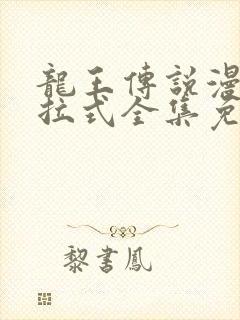 龍王傳說漫
拉式全集免
黎書鳳